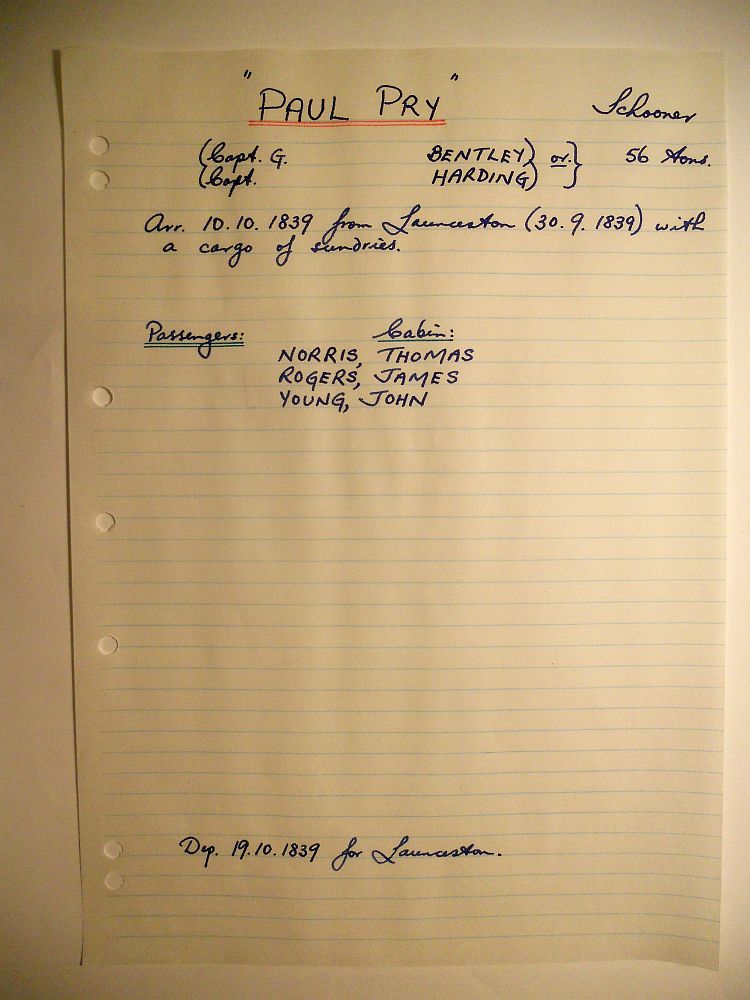 "PAUL PRY" Schooner
(Capt. G. BENTLEY) or } 56 tons.
(Capt. HARDING)
Arr. 10.10.1839 from Launceston (30.9.1839) with
a cargo of sundries.
Passengers: Cabin:
NORRIS, THOMAS
ROGERS, JAMES
YOUNG, JOHN
Dep. 19.10.1839 for Launceston.